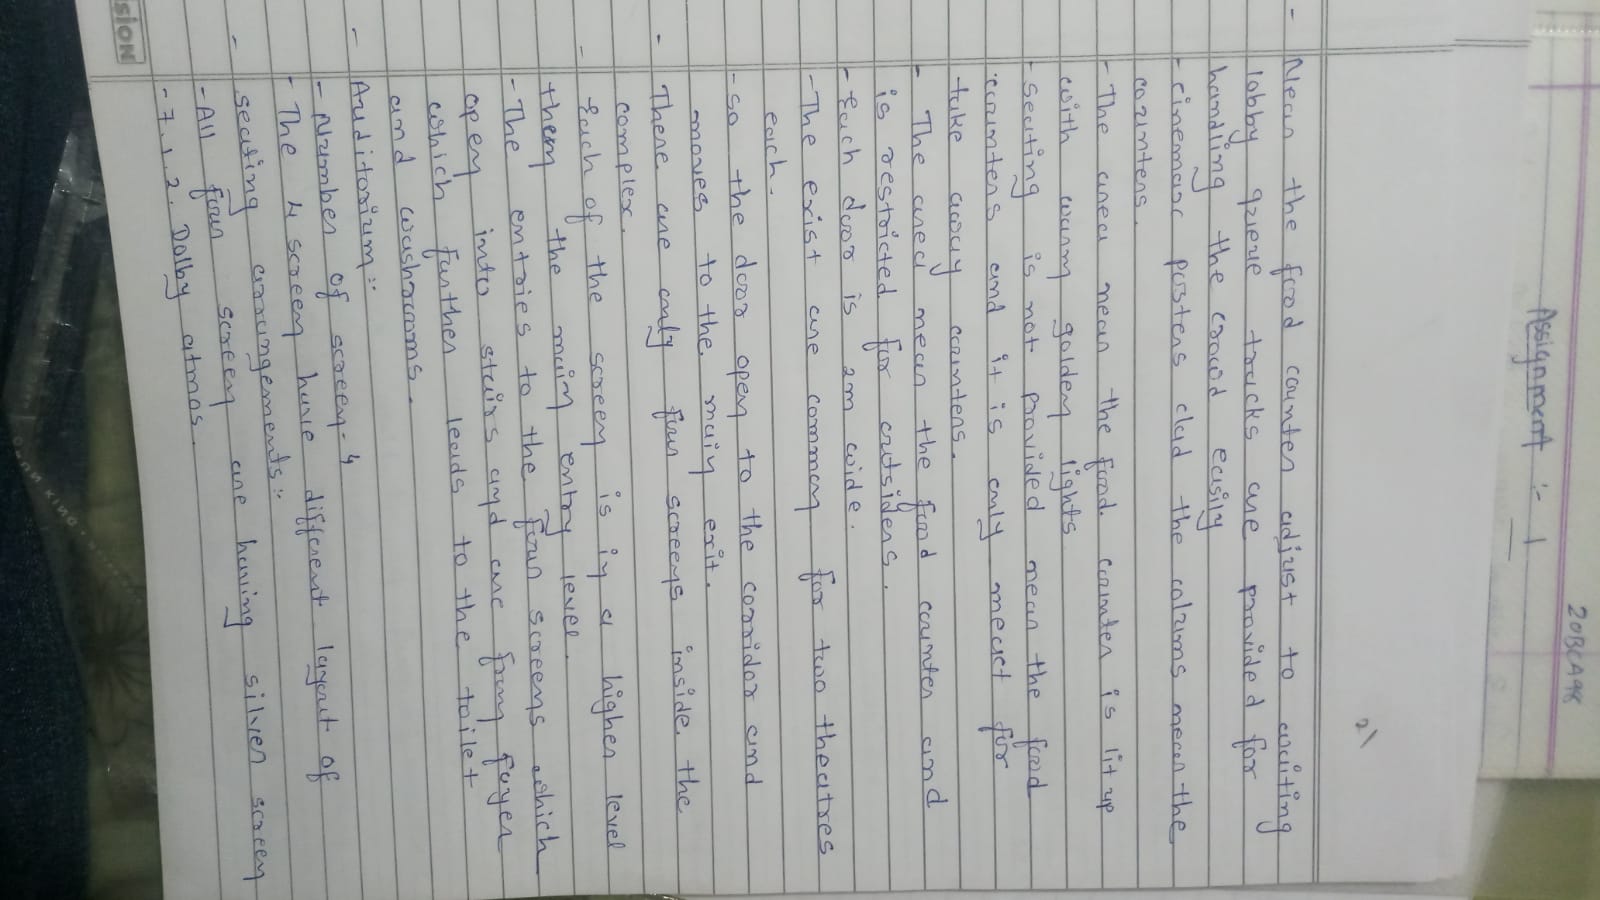 20BCA98
Assignment :- 1
2\
- Near the food counter adjust to waiting
lobby queue tracks are provided for
handling the crowd easily
- cinemasc posters clad the colums near the
counters.
- The area near the food counter is lit up
with warm golden lights
- Seating is not provided near the food
counters and it is only meact for
take away counters.
- The area near the food counter and
is restricted for outsiders.
- Each door is 2m wide.
- The exist are common for two theatres
each.
- so the door open to the corridor and
moves to the main exit.
- There are only four screens inside the
complex.
- Each of the screen is in a higher level
them the main entry level.
- The entries to the four screens which
open into stairs and are from foyer
which further leads to the toilet
and washrooms.
- Auditorium :-
- Number of screen - 4
- The 4 screen have different layout of
seating arrangements :-
- All four screen are having silver screen
- 7.1.2. Dolby atmos.
SION